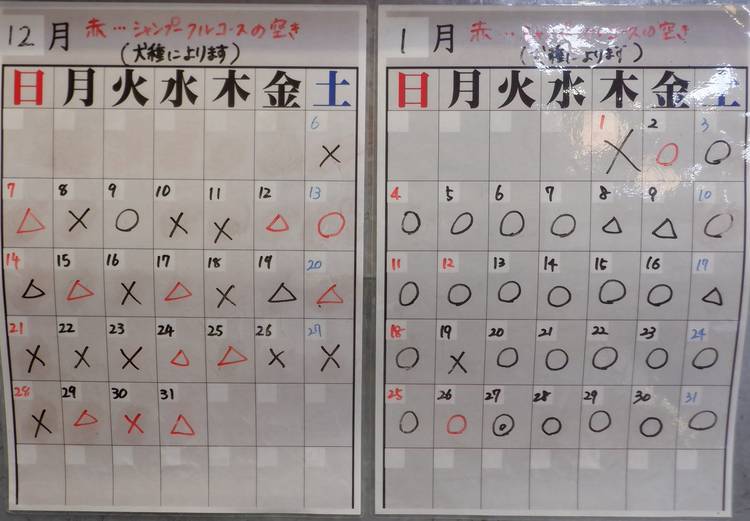 12月 赤…シャンプーフルコースの空き
(犬種によります)
日 月 火 水 木 金 土
6
×
7 8 9 10 11 12 13
△ × ○ × × △ ○
14 15 16 17 18 19 20
△ △ × △ × △ △
21 22 23 24 25 26 27
× × × △ △ × ×
28 29 30 31
× △ × △
1月 赤…シャンプーフルコースの空き
(犬種によります)
日 月 火 水 木 金 土
1 2 3
× ○ ○
4 5 6 7 8 9 10
○ ○ ○ ○ △ △ ○
11 12 13 14 15 16 17
○ ○ ○ ○ ○ ○ △
18 19 20 21 22 23 24
○ × ○ ○ ○ ○ ○
25 26 27 28 29 30 31
○ ○ ◎ ○ ○ ○ ○